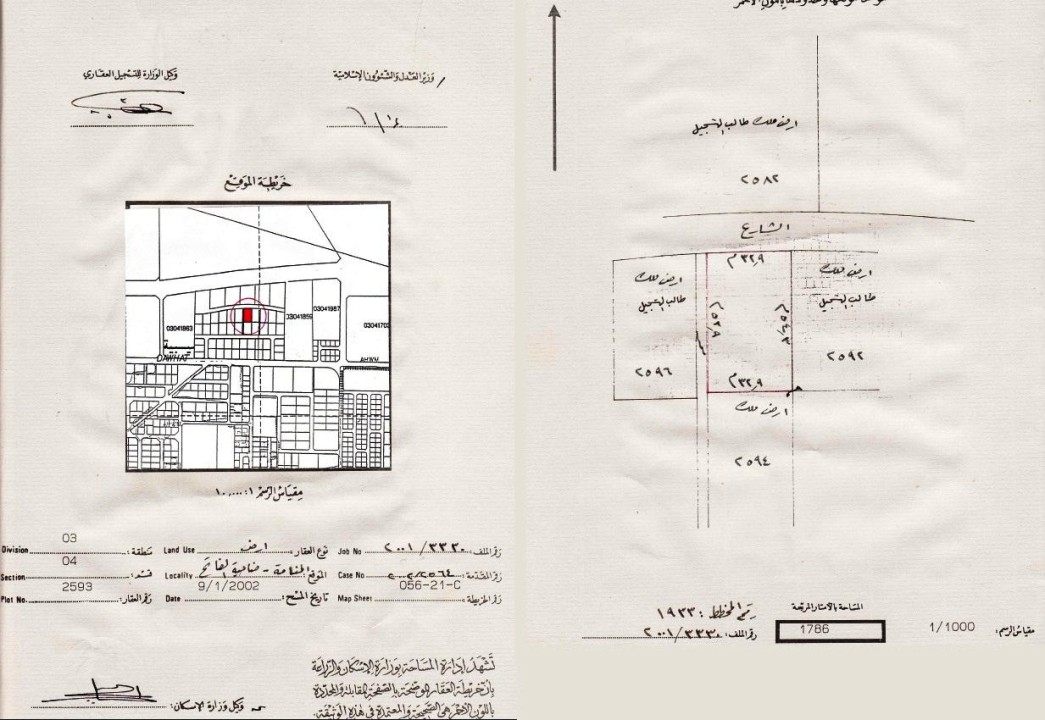 وكيل الوزارة للتسجيل العقاري
وزير العدل والشئون الإسلامية
خريطة الموقع
03041863
03041859
03041987
DAWHAT
AHWM
مقياس الرسم ١:١٠,٠٠٠
Division 03 منطقة:
Land Use ارض نوع العقار:
Job No ٢٠٠١/٣٣٣٠ رقم الملف:
Section 04 قسم:
Locality المنامة - ضاحية الفاتح الموقع:
Case No ٢٠٠٢/٢٥٦٤ رقم المقدمة:
Plot No. 2593 رقم العقار:
Date 9/1/2002 تاريخ المسح:
Map Sheet 056-21-C رقم الخريطة:
تشهد إدارة المساحة بوزارة الإسكان والزراعة
بأن خريطة العقار الموضحة بالصفحة المقابلة والمحددة
باللون الأحمر هي الصحيحة والمعتمدة في هذه الوثيقة.
وكيل وزارة الإسكان:
ارض ملك طالب التسجيل
٢٥٨٢
الشارع
٣٢,٩ م
ارض ملك
طالب التسجيل
ارض ملك
طالب التسجيل
٢٥٩٦
٢٥٩٢
٣٢,٩ م
ارض ملك
٢٥٩٤
رقم المخطط: ١٩٣٣
المساحة بالأمتار المربعة
رقم الملف: ٢٠٠١/٣٣٣٠
1786
مقياس الرسم: 1/1000